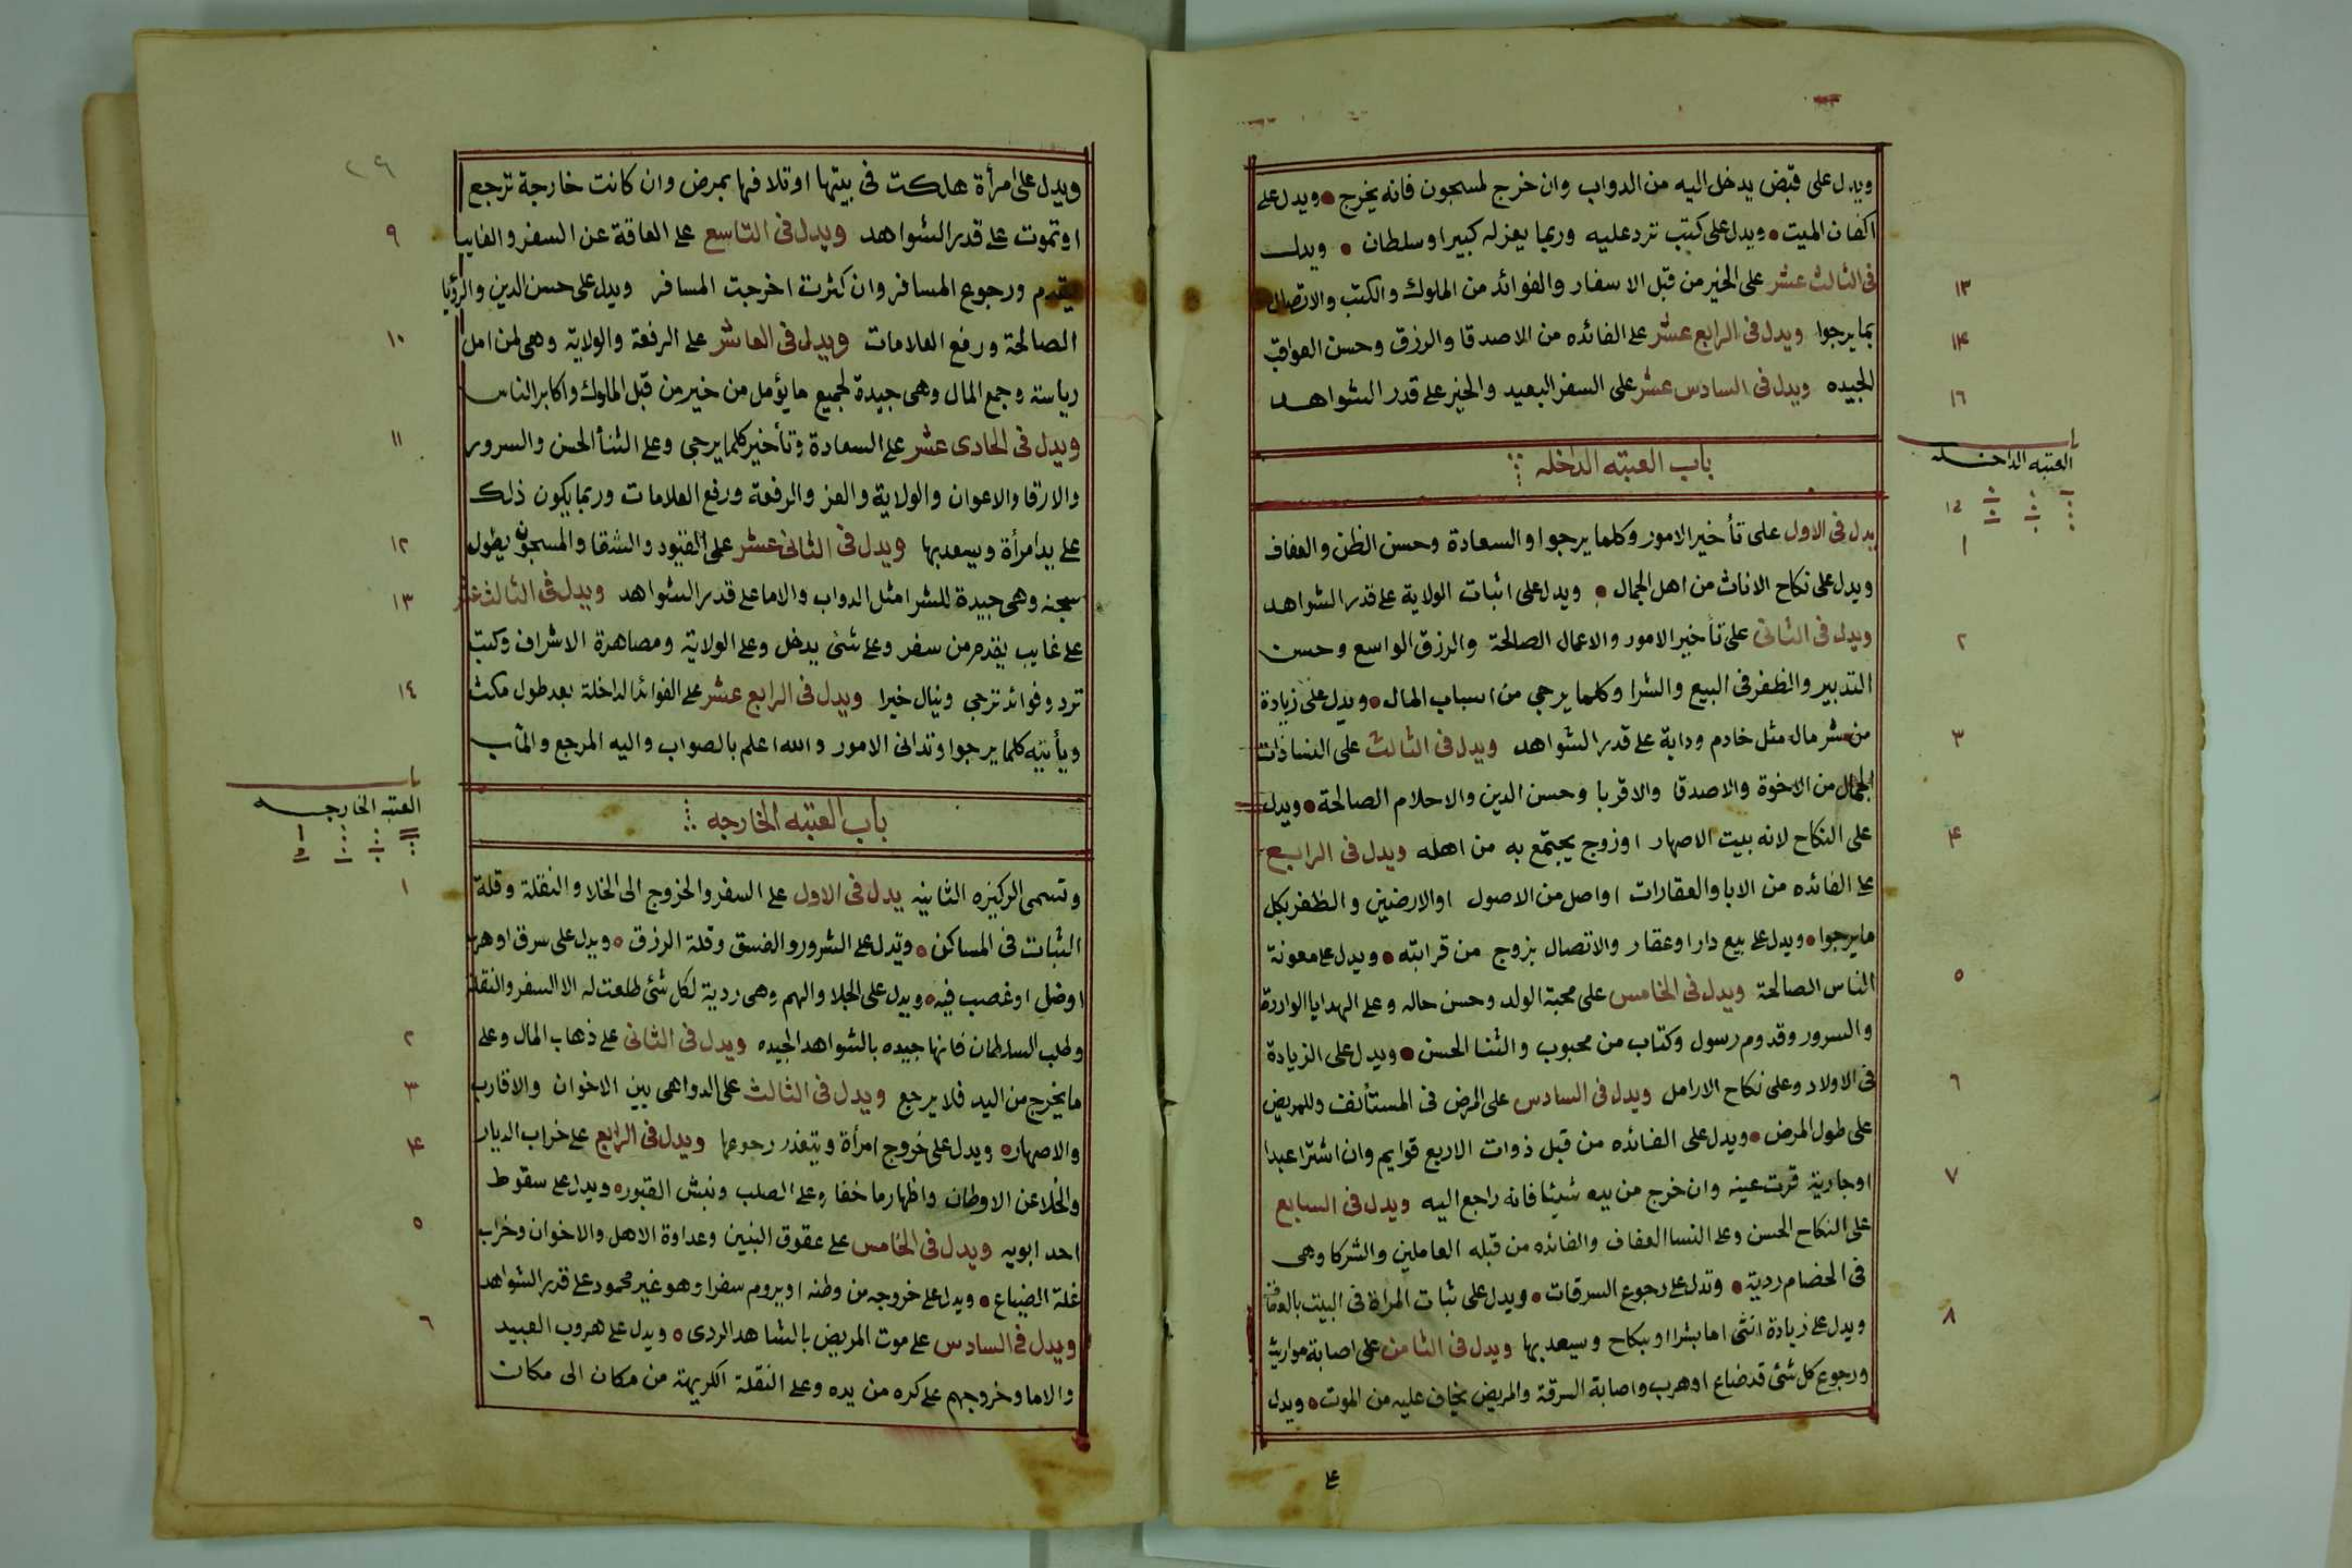 ويدل على قبض يدخل اليه من الدواب وان خرج لمسجون فانه يخرج • ويدل على
اكفان الميت • ويدل على كتب ترد عليه وربما يعزله كبير او سلطان • ويدل
فى الثالث عشر على الخير من قبل الاسفار والفوائد من الملوك والكتب والاتصال
١٣
بما يرجوا ويدل فى الرابع عشر على الفائده من الاصدقا والرزق وحسن العواقب
١۴
الجيده ويدل فى السادس عشر على السفر البعيد والخير على قدر الشواهد
١٦
باب العتبه الداخله
باب
العتبه الداخله
يدل فى الاول على تأخير الامور وكلما يرجوا والسعادة وحسن الظن والعفاف
١
ويدل على نكاح الاناث من اهل الجمال • ويدل على اثبات الولاية على قدر الشواهد
ويدل فى الثانى على تأخير الامور والاعمال الصالحة والرزق الواسع وحسن
٢
التدبير والظفر فى البيع والشرا وكلما يرجى من اسباب المال • ويدل على زيادة
من شر مال مثل خادم ودابة على قدر الشواهد ويدل فى الثالث على النسا ذات
٣
الجمال من الاخوة والاصدقا والاقربا وحسن الدين والاحلام الصالحة • ويدل
على النكاح لانه بيت الاصهار او زوج يجتمع به من اهله ويدل فى الرابع
۴
على الفائده من الابا والعقارات او اصل من الاصول او الارضين والظفر بكل
ما يرجوا • ويدل على بيع دار او عقار والاتصال بزوج من قرابته • ويدل على معونة
الناس الصالحة ويدل فى الخامس على محبة الولد وحسن حاله وعلى الهدايا الواردة
٥
والسرور وقدوم رسول وكتاب من محبوب والثنا الحسن • ويدل على الزيادة
فى الاولاد وعلى نكاح الارامل ويدل فى السادس على المرض فى المستأنف وللمريض
٦
على طول المرض • ويدل على الفائده من قبل ذوات الاربع قوايم وان اشترا عبدا
او جارية قرت عينه وان خرج من يده شيئا فانه راجع اليه ويدل فى السابع
٧
على النكاح الحسن وعلى النسا العفاف والفائده من قبله العاملين والشركا وهى
فى الخصام ردية • وتدل على رجوع السرقات • ويدل على ثبات المراة فى البيت بالعفاف
ويدل على زيادة انثى اما بشرا او بنكاح ويسعد بها ويدل فى الثامن على اصابة مواريث
٨
ورجوع كل شئ قد ضاع او هرب واصابة السرقة والمريض يخاف عليه من الموت • ويدل
على
٢٩
ويدل على امرأة هلكت فى بيتها او تلافها بمرض وان كانت خارجة ترجع
او تموت على قدر الشواهد ويدل فى التاسع على العاقة عن السفر والغايب
٩
يقدم ورجوع المسافر وان كثرت اخرجت المسافر ويدل على حسن الدين والرؤيا
الصالحة ورفع العلامات ويدل فى العاشر على الرفعة والولاية وهى لمن امل
١٠
رياسة وجمع المال وهى جيدة لجميع ما يؤمل من خير من قبل الملوك واكابر الناس
ويدل فى الحادى عشر على السعادة وتأخير كلما يرجى وعلى الثنأ الحسن والسرور
١١
والارقا والاعوان والولاية والعز والرفعة ورفع العلامات وربما يكون ذلك
على يد امرأة ويسعد بها ويدل فى الثانى عشر على القيود والشقا والمسجون يطول
١٢
سجنه وهى جيدة للشرا مثل الدواب والاما على قدر الشواهد ويدل فى الثالث عشر
١٣
على غايب يقدم من سفر وعلى شئ يدخل وعلى الولاية ومصاهرة الاشراف وكتب
ترد وفوائد ترجى وينال خيرا ويدل فى الرابع عشر على الفوائد الداخلة بعد طول مكث
١٤
ويأتيه كلما يرجوا وتدانى الامور والله اعلم بالصواب واليه المرجع والمآب
باب العتبه الخارجه
باب
العتبه الخارجه
وتسمى الركيزه الثانيه يدل فى الاول على السفر والخروج الى الخلا والنقلة وقلة
١
الثبات فى المساكن • وتدل على الشرور والفسق وقلة الرزق • ويدل على سرق او هرب
او ضل او غصب فيه • ويدل على الجلا والهم وهى ردية لكل شئ طلعت له الا السفر والنقلة
وطلب السلطان فانها جيده بالشواهد الجيده ويدل فى الثانى على ذهاب المال وعلى
٢
ما يخرج من اليد فلا يرجع ويدل فى الثالث على الدواهى بين الاخوان والاقارب
٣
والاصهار • ويدل على خروج امرأة ويتعذر رجوعها ويدل فى الرابع على خراب الديار
۴
والخلا عن الاوطان واظهار ما خفا وعلى الصلب ونبش القبور • ويدل على سقوط
احد ابويه ويدل فى الخامس على عقوق البنين وعداوة الاهل والاخوان وخراب
٥
غلة الضياع • ويدل على خروجه من وطنه او يروم سفرا وهو غير محمود على قدر الشواهد
ويدل فى السادس على موت المريض بالشاهد الردى • ويدل على هروب العبيد
٦
والاما وخروجهم على كره من يده وعلى النقلة الكريهة من مكان الى مكان